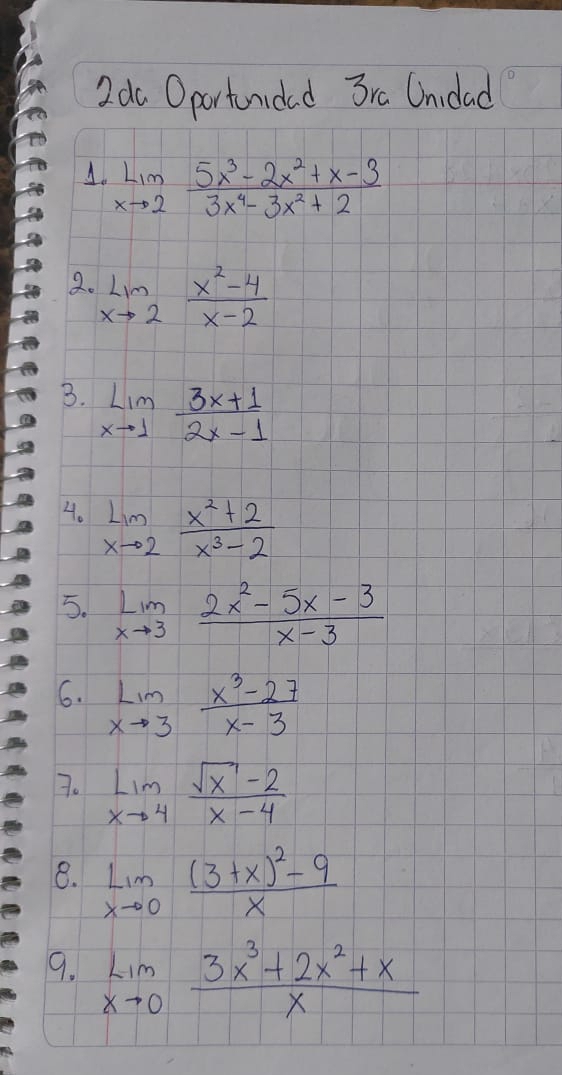 2da Oportunidad 3ra Unidad
1. Lim 5x³ - 2x² + x - 3
x→2 3x⁴ - 3x² + 2
2. Lim x² - 4
x→2 x - 2
3. Lim 3x + 1
x→1 2x - 1
4. Lim x² + 2
x→2 x³ - 2
5. Lim 2x² - 5x - 3
x→3 x - 3
6. Lim x³ - 27
x→3 x - 3
7. Lim √x - 2
x→4 x - 4
8. Lim (3 + x)² - 9
x→0 x
9. Lim 3x³ + 2x² + x
x→0 x